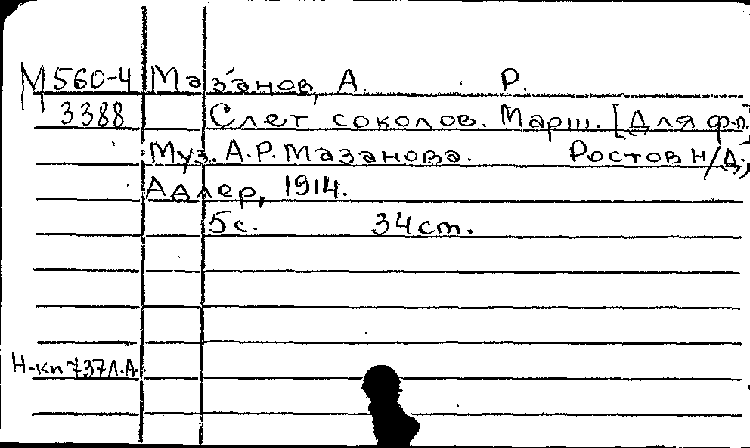 М560-4 Мазанов, А. Р.
3388 Слет соколов. Марш. [Для ф.п.]
Муз. А.Р. Мазанова. Ростов н/Д,
Адлер, 1914.
5с. 34 см.
Н-кп 737 Л.А.